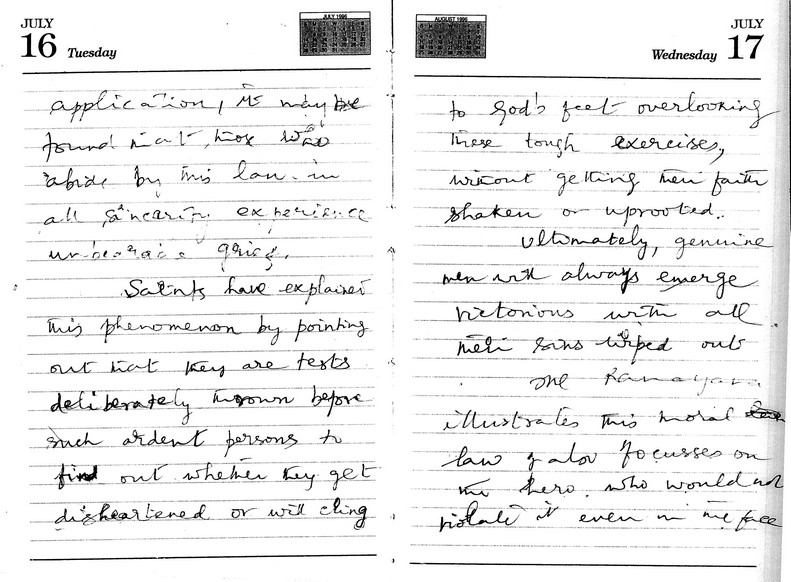 JULY
16 Tuesday
JULY 1996
application, it may be
found that, those who
abide by this law in
all sincerity experience
unbearable grief.
Saints have explained
this phenomenon by pointing
out that they are tests
deliberately thrown before
such ardent persons to
find out whether they get
disheartened or will cling
AUGUST 1996
JULY
Wednesday 17
to God's feet overlooking
these tough exercises,
without getting their faith
shaken or uprooted.
Ultimately, genuine
men will always emerge
victorious with all
their sins wiped out
The Ramayana
illustrates this moral
law & also focusses on
the hero, who would not
violate it even in the face